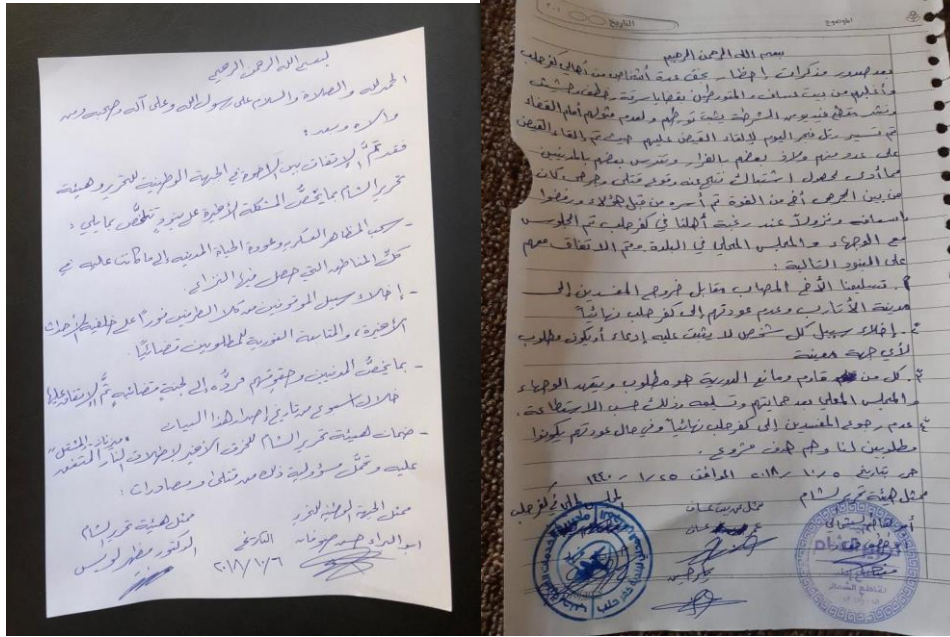 بسم الله الرحمن الرحيم
الحمد لله والصلاة والسلام على رسول الله وعلى آله وصحبه ومن
والاه وبعد:
فقد تمَّ الإتفاق بين الإخوة في الجبهة الوطنية للتحرير وهيئة
تحرير الشام بما يخصُّ المشكلة الأخيرة على بنودٍ تتلخَّص بما يلي:
- سحب المظاهر العسكرية وعودة الحياة المدنية إلى ما كانت عليه في
كلِّ المناطق التي حصل فيها النزاع.
- إخلاء سبيل الموقوفين من كلا الطرفين فوراً على خلفية الأحداث
الأخيرة، والمتابعة الفورية للمطلوبين قضائيًّا.
- بما يخصُّ المدنيين وحقوقهم مردُّه إلى لجنة قضائية يتمُّ الإتفاق عليها
خلال أسبوع من تاريخ إصدار هذا البيان
- ضمان هيئة تحرير الشام للخرق الأخير لإطلاق النَّار المتفق
عليه وتحمُّل مسؤولية ذلك من قتلى ومصادرات:
ممثل الجبهة الوطنية للتحرير
ممثل هيئة تحرير الشام
التاريخ
٢٠١٨/١٠/٦
الدكتور مظهر لويس
الموضوع
التاريخ
بسم الله الرحمن الرحيم
بعد صدور مذكرات إحضار بحق عدة أشخاص من أهالي كفرحلب
وأغلبهم من بيت عساف والمتورطين بقضايا سرقة وخطف وحشيش
ونشر مقطع فيديو من الشرطة يثبت تورطهم ولعدم مثولهم أمام القضاء
تم تسيير رتل فجر اليوم لإلقاء القبض عليهم حيث تم إلقاء القبض
على عدد منهم ولاذ بعضهم بالفرار وتترس بعضهم بالمدنيين
مما أدى لحصول اشتباك نتج عنه وقوع قتلى وجرحى كان
من بين الجرحى أخ من القوة تم أسره من قبل هؤلاء ورفضوا
إسعافه ونزولاً عند رغبة أهلنا في كفرحلب تم الجلوس
مع الوجهاء والمجلس المحلي في البلدة وتم الاتفاق معهم
على البنود التالية:
١. تسليمنا الأخ المصاب مقابل خروج المفسدين إلى
مدينة الأتارب وعدم عودتهم إلى كفرحلب نهائياً
٢. إخلاء سبيل كل شخص لا يثبت عليه إدعاء أو يكون مطلوب
لأي جهة معينة
٣. كل من قاوم ومانع الدورية هو مطلوب ويتعهد الوجهاء
والمجلس المحلي بعد حمايتهم وتسليمه وذلك حسب الاستطاعة.
٤. عدم رجوع المفسدين إلى كفرحلب نهائياً وفي حال عودتهم يكونوا
مطلوبين لنا وهم هدف مشروع.
حرر بتاريخ ٢٠١٨/١٠/٥ الموافق ١٤٤٠/١/٢٥
ممثل هيئة تحرير الشام
ممثل عن بيت عساف
المجلس المحلي في كفرحلب